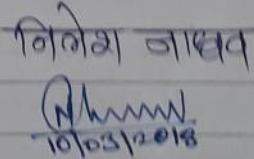 निलेश जाधव
10/03/2018